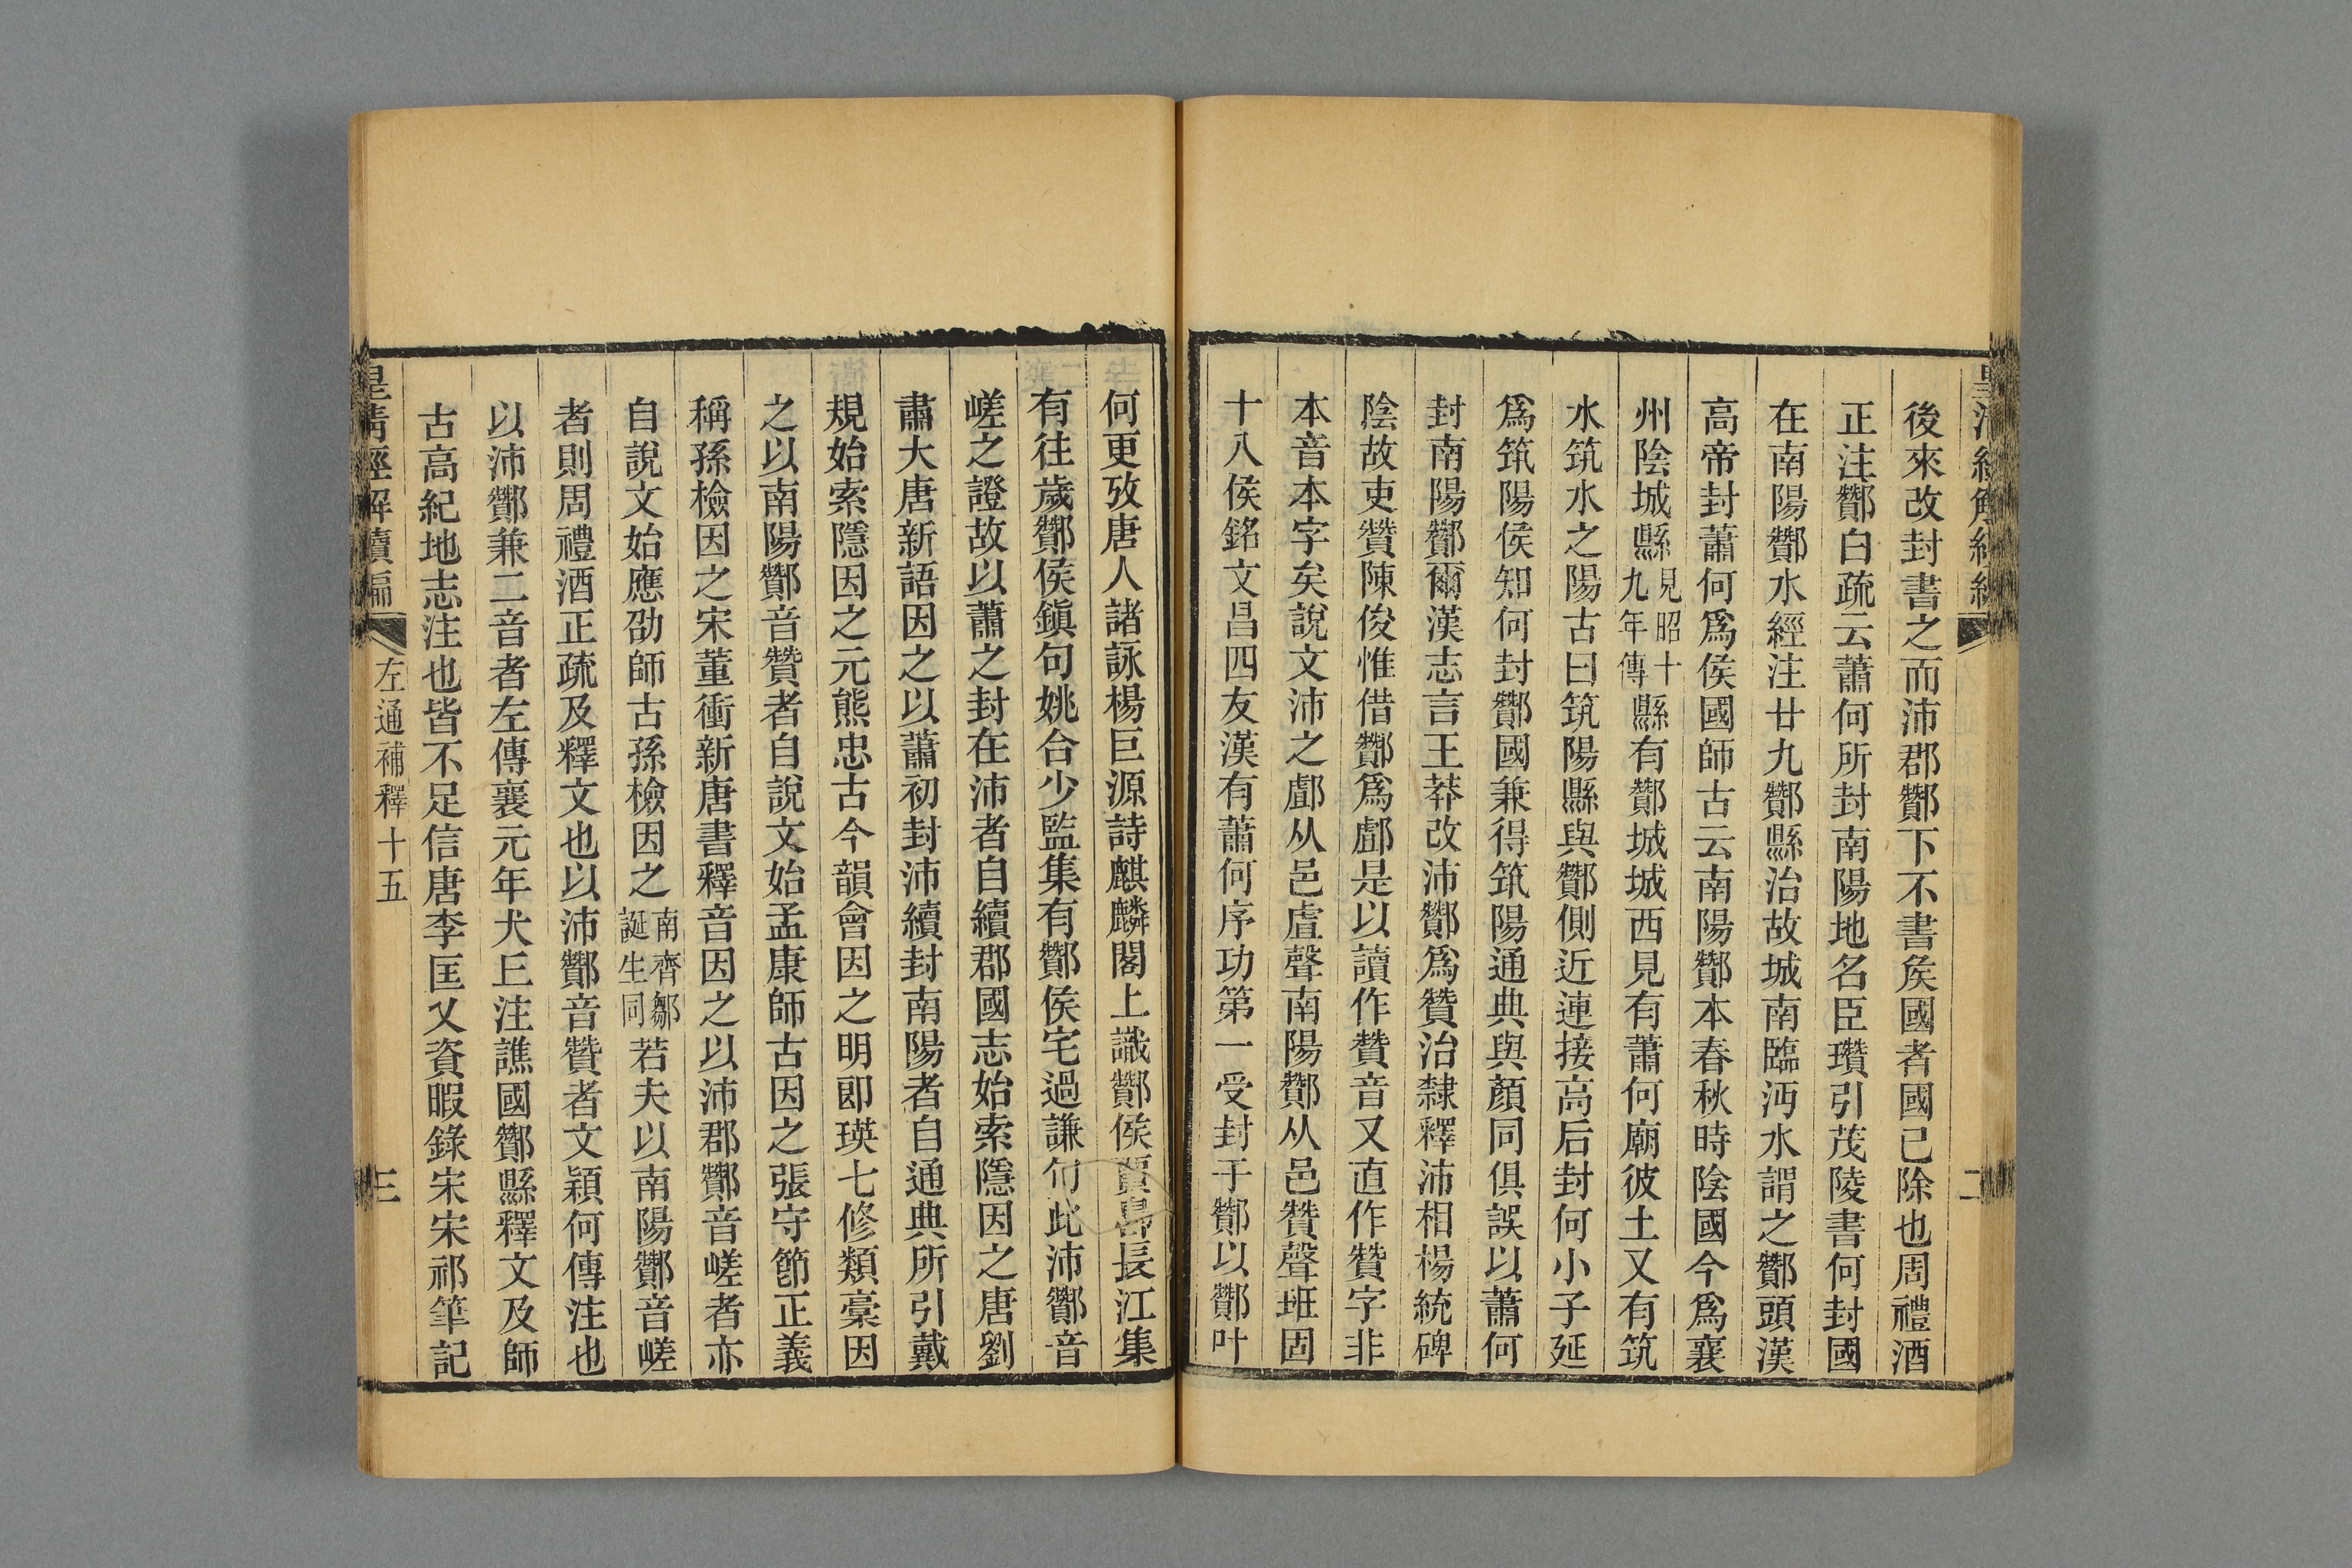 後來改封書之而沛郡酇下不書矦國者國已除也周禮酒
正注酇白疏云蕭何所封南陽地名臣瓚引茂陵書何封國
在南陽酇水經注廿九酇縣治故城南臨沔水謂之酇頭漢
高帝封蕭何爲侯國師古云南陽酇本春秋時陰國今爲襄
州陰城縣見昭十九年傳縣有酇城城西見有蕭何廟彼土又有筑
水筑水之陽古曰筑陽縣與酇側近連接高后封何小子延
爲筑陽侯知何封酇國兼得筑陽通典與顏同俱誤以蕭何
封南陽酇爾漢志言王莽改沛酇爲贊治隸釋沛相楊統碑
陰故吏贊陳俊惟借酇爲鄌是以讀作贊音又直作贊字非
本音本字矣說文沛之鄌从邑虘聲南陽酇从邑贊聲班固
十八侯銘文昌四友漢有蕭何序功第一受封于酇以酇叶
何更攷唐人諸詠楊巨源詩麒麟閣上識酇侯賈島長江集
有往歲酇侯鎭句姚合少監集有酇侯宅過謙句此沛酇音
嵯之證故以蕭之封在沛者自續郡國志始索隱因之唐劉
肅大唐新語因之以蕭初封沛續封南陽者自通典所引戴
規始索隱因之元熊忠古今韻會因之明郎瑛七修類稾因
之以南陽酇音贊者自說文始孟康師古因之張守節正義
稱孫檢因之宋董衝新唐書釋音因之以沛郡酇音嵯者亦
自說文始應劭師古孫檢因之南齊鄒誕生同若夫以南陽酇音嵯
者則周禮酒正疏及釋文也以沛酇音贊者文穎何傳注也
以沛酇兼二音者左傳襄元年犬丘注譙國酇縣釋文及師
古高紀地志注也皆不足信唐李匡乂資暇錄宋宋祁筆記
皇淸經解續編 左通補釋十五 三